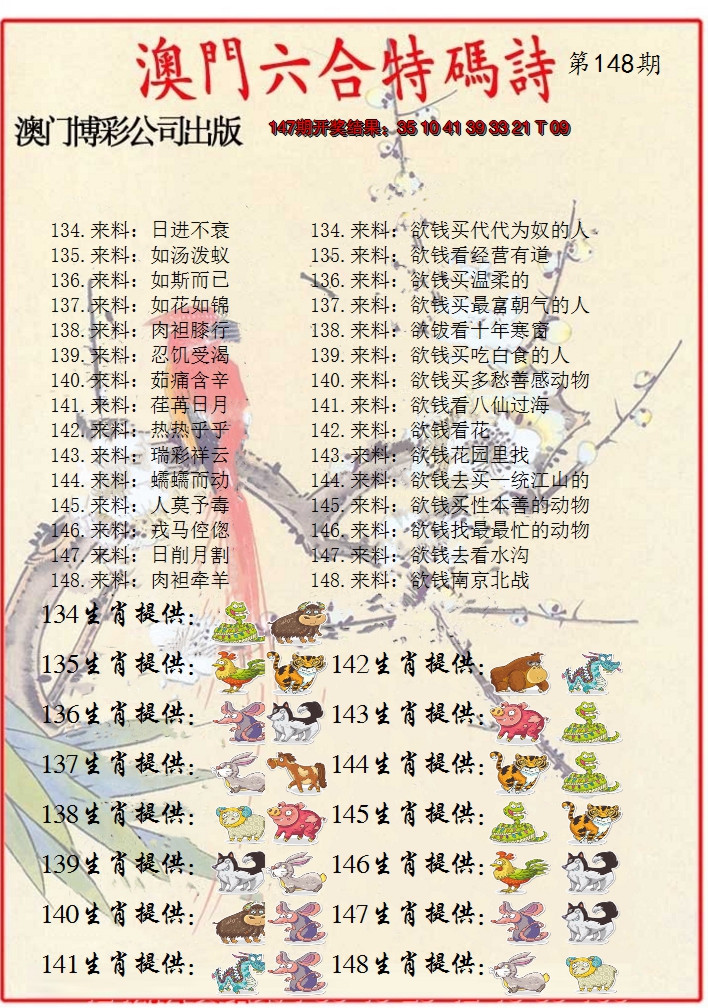 澳門六合特碼詩 第148期
澳门博彩公司出版 147期开奖结果：35 10 41 39 33 21 T 09
134.来料：日进不衰 134.来料：欲钱买代代为奴的人
135.来料：如汤泼蚁 135.来料：欲钱看经营有道
136.来料：如斯而已 136.来料：欲钱买温柔的
137.来料：如花如锦 137.来料：欲钱买最富朝气的人
138.来料：肉袒膝行 138.来料：欲钹看十年寒窗
139.来料：忍饥受渴 139.来料：欲钱买吃白食的人
140.来料：茹痛含辛 140.来料：欲钱买多愁善感动物
141.来料：荏苒日月 141.来料：欲钱看八仙过海
142.来料：热热乎乎 142.来料：欲钱看花
143.来料：瑞彩祥云 143.来料：欲钱花园里找
144.来料：蠕蠕而动 144.来料：欲钱去买一统江山的
145.来料：人莫予毒 145.来料：欲钱买性本善的动物
146.来料：戎马倥偬 146.来料：欲钱找最最忙的动物
147.来料：日削月割 147.来料：欲钱去看水沟
148.来料：肉袒牵羊 148.来料：欲钱南京北战
134生肖提供：
135生肖提供： 142生肖提供：
136生肖提供： 143生肖提供：
137生肖提供： 144生肖提供：
138生肖提供： 145生肖提供：
139生肖提供： 146生肖提供：
140生肖提供： 147生肖提供：
141生肖提供： 148生肖提供：